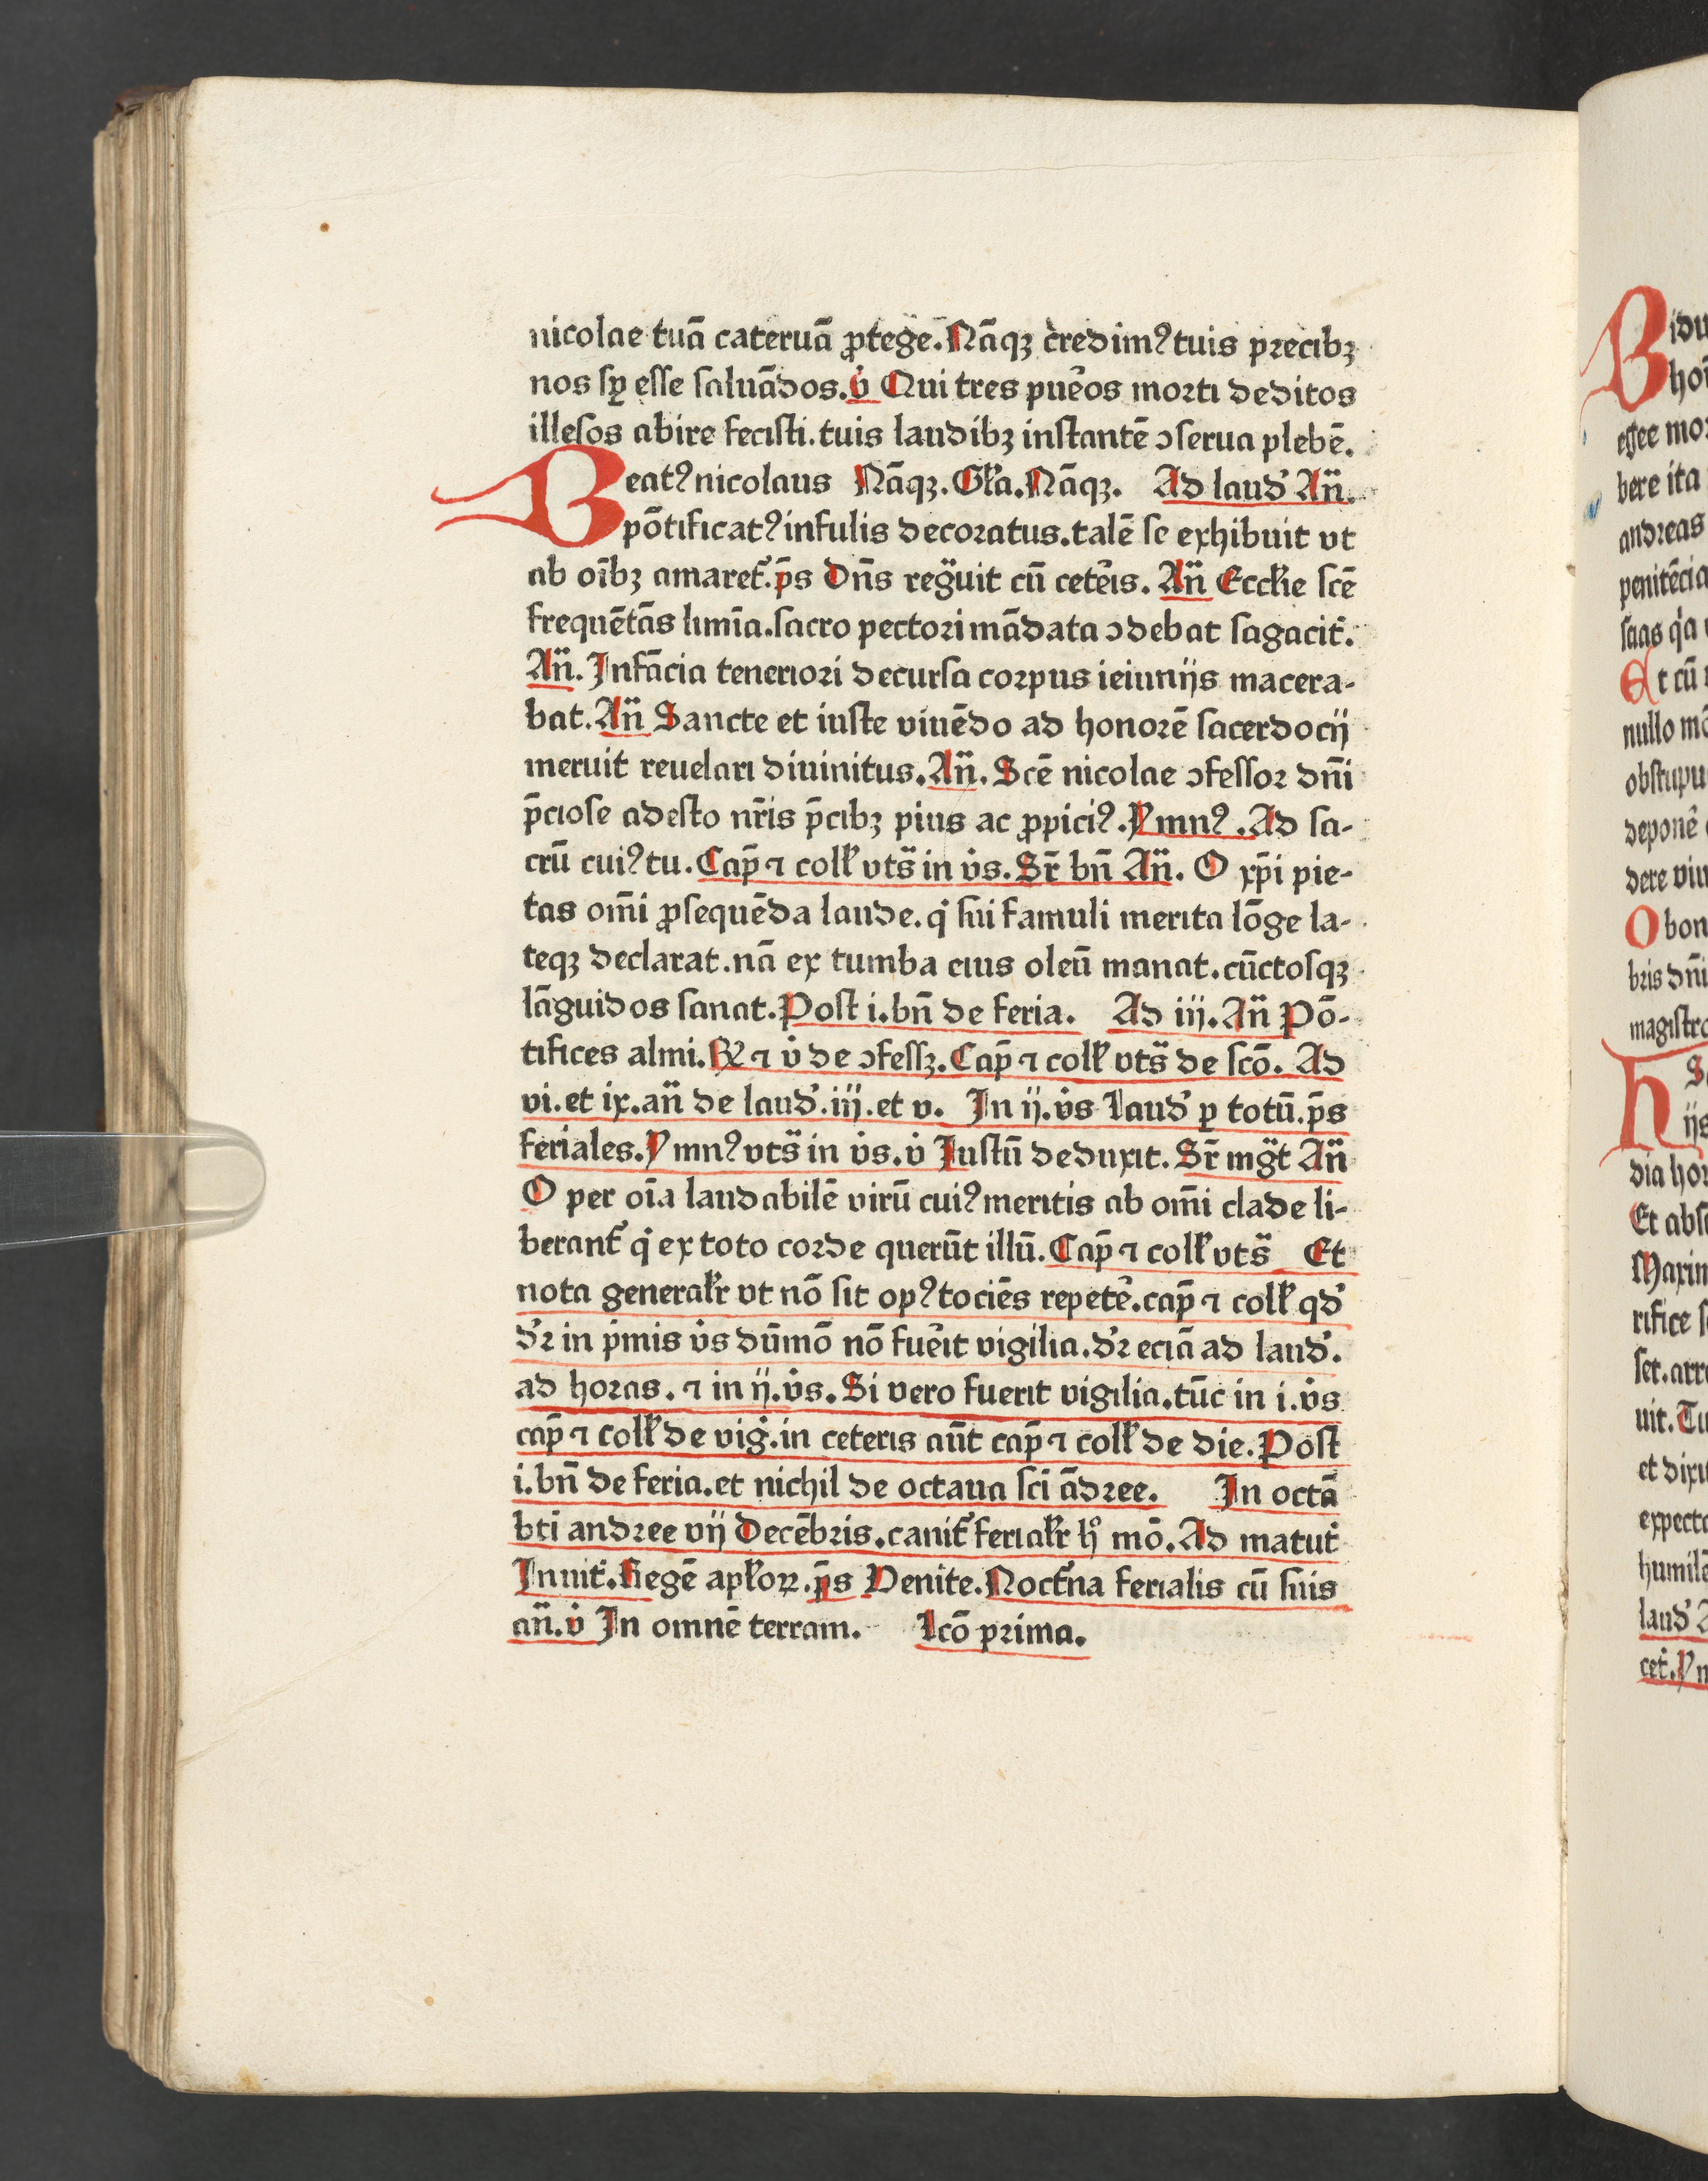 nicolae tuā cateruā ꝓtege. Nāqꝫ credimꝰ tuis precibꝫ
nos sꝑ esse saluādos. v̇ Qui tres pue᷒os morti deditos
illesos abire fecisti. tuis laudibꝫ instantē ꝯserua plebē.
Beatꝰ nicolaus Nāqꝫ. Gl̄a. Nāqꝫ. Ad laud᷒ An̄.
pōtificatꝰ infulis decoratus. talē se exhibuit vt
ab oībꝫ amaret᷒. p̄s Dn̄s reg̈uit cū cete᷒is. An̄ Eccl̄ie scē
frequētās limīa. sacro pectori mādata ꝯdebat sagacit᷒.
An̄. Infācia teneriori decursa corpus ieiunijs macera-
bat. An̄ Sancte et iuste viuēdo ad honorē sacerdocij
meruit reuelari diuinitus. An̄. Scē nicolae ꝯfessor dn̄i
p̄ciose adesto nr̄is p̄cibꝫ pius ac ꝓpiciꝰ. Ymnꝰ. Ad sa-
crū cuiꝰ tu. Cap̄ ⁊ coll̄ vts̈ in v̇s. Sr̄ bn̄ An̄. O xp̄i pie-
tas om̄i ꝓsequēda laude. q᷒ sui famuli merita lōge la-
teqꝫ declarat. nā ex tumba eius oleū manat. cūctosqꝫ
lāguidos sanat. Post i. bn̄ de feria. Ad iij. An̄ Pō-
tifices almi. ℟ ⁊ v̇ de ꝯfessꝫ. Cap̄ ⁊ coll̄ vts̈ de scō. Ad
vi. et ix. an̄ de laud᷒. iij. et v. In ij. v̇s Laud᷒ ꝑ totū. p̄s
feriales. Ymnꝰ vts̈ in v̇s. v̇ Iustū deduxit. Sr̄ mg̈t An̄
O per oīa laudabilē virū cuiꝰ meritis ab om̄i clade li-
berant᷒ q᷒ ex toto corde querūt illū. Cap̄ ⁊ coll̄ vts̈ Et
nota general̄r vt nō sit opꝰ tociēs repete᷒. cap̄ ⁊ coll̄ qd᷒
d᷒r in p᷒mis v̇s dūmō nō fue᷒it vigilia. d᷒r eciā ad laud᷒.
ad horas. ⁊ in ij. v̇s. Si vero fuerit vigilia. tūc in i. v̇s
cap̄ ⁊ coll̄ de vig᷒. in ceteris aūt cap̄ ⁊ coll̄ de die. Post
i. bn̄ de feria. et nichil de octaua sci ādree. In octā
bti andree vij Decēbris. canit᷒ ferial̄r hͦ mō. Ad matut᷒
Inuit᷒. Regē apl̄oꝝ. p̄s Venite. Noct᷒na ferialis cū suis
an̄. v̇ In omnē terram. Lcō prima.